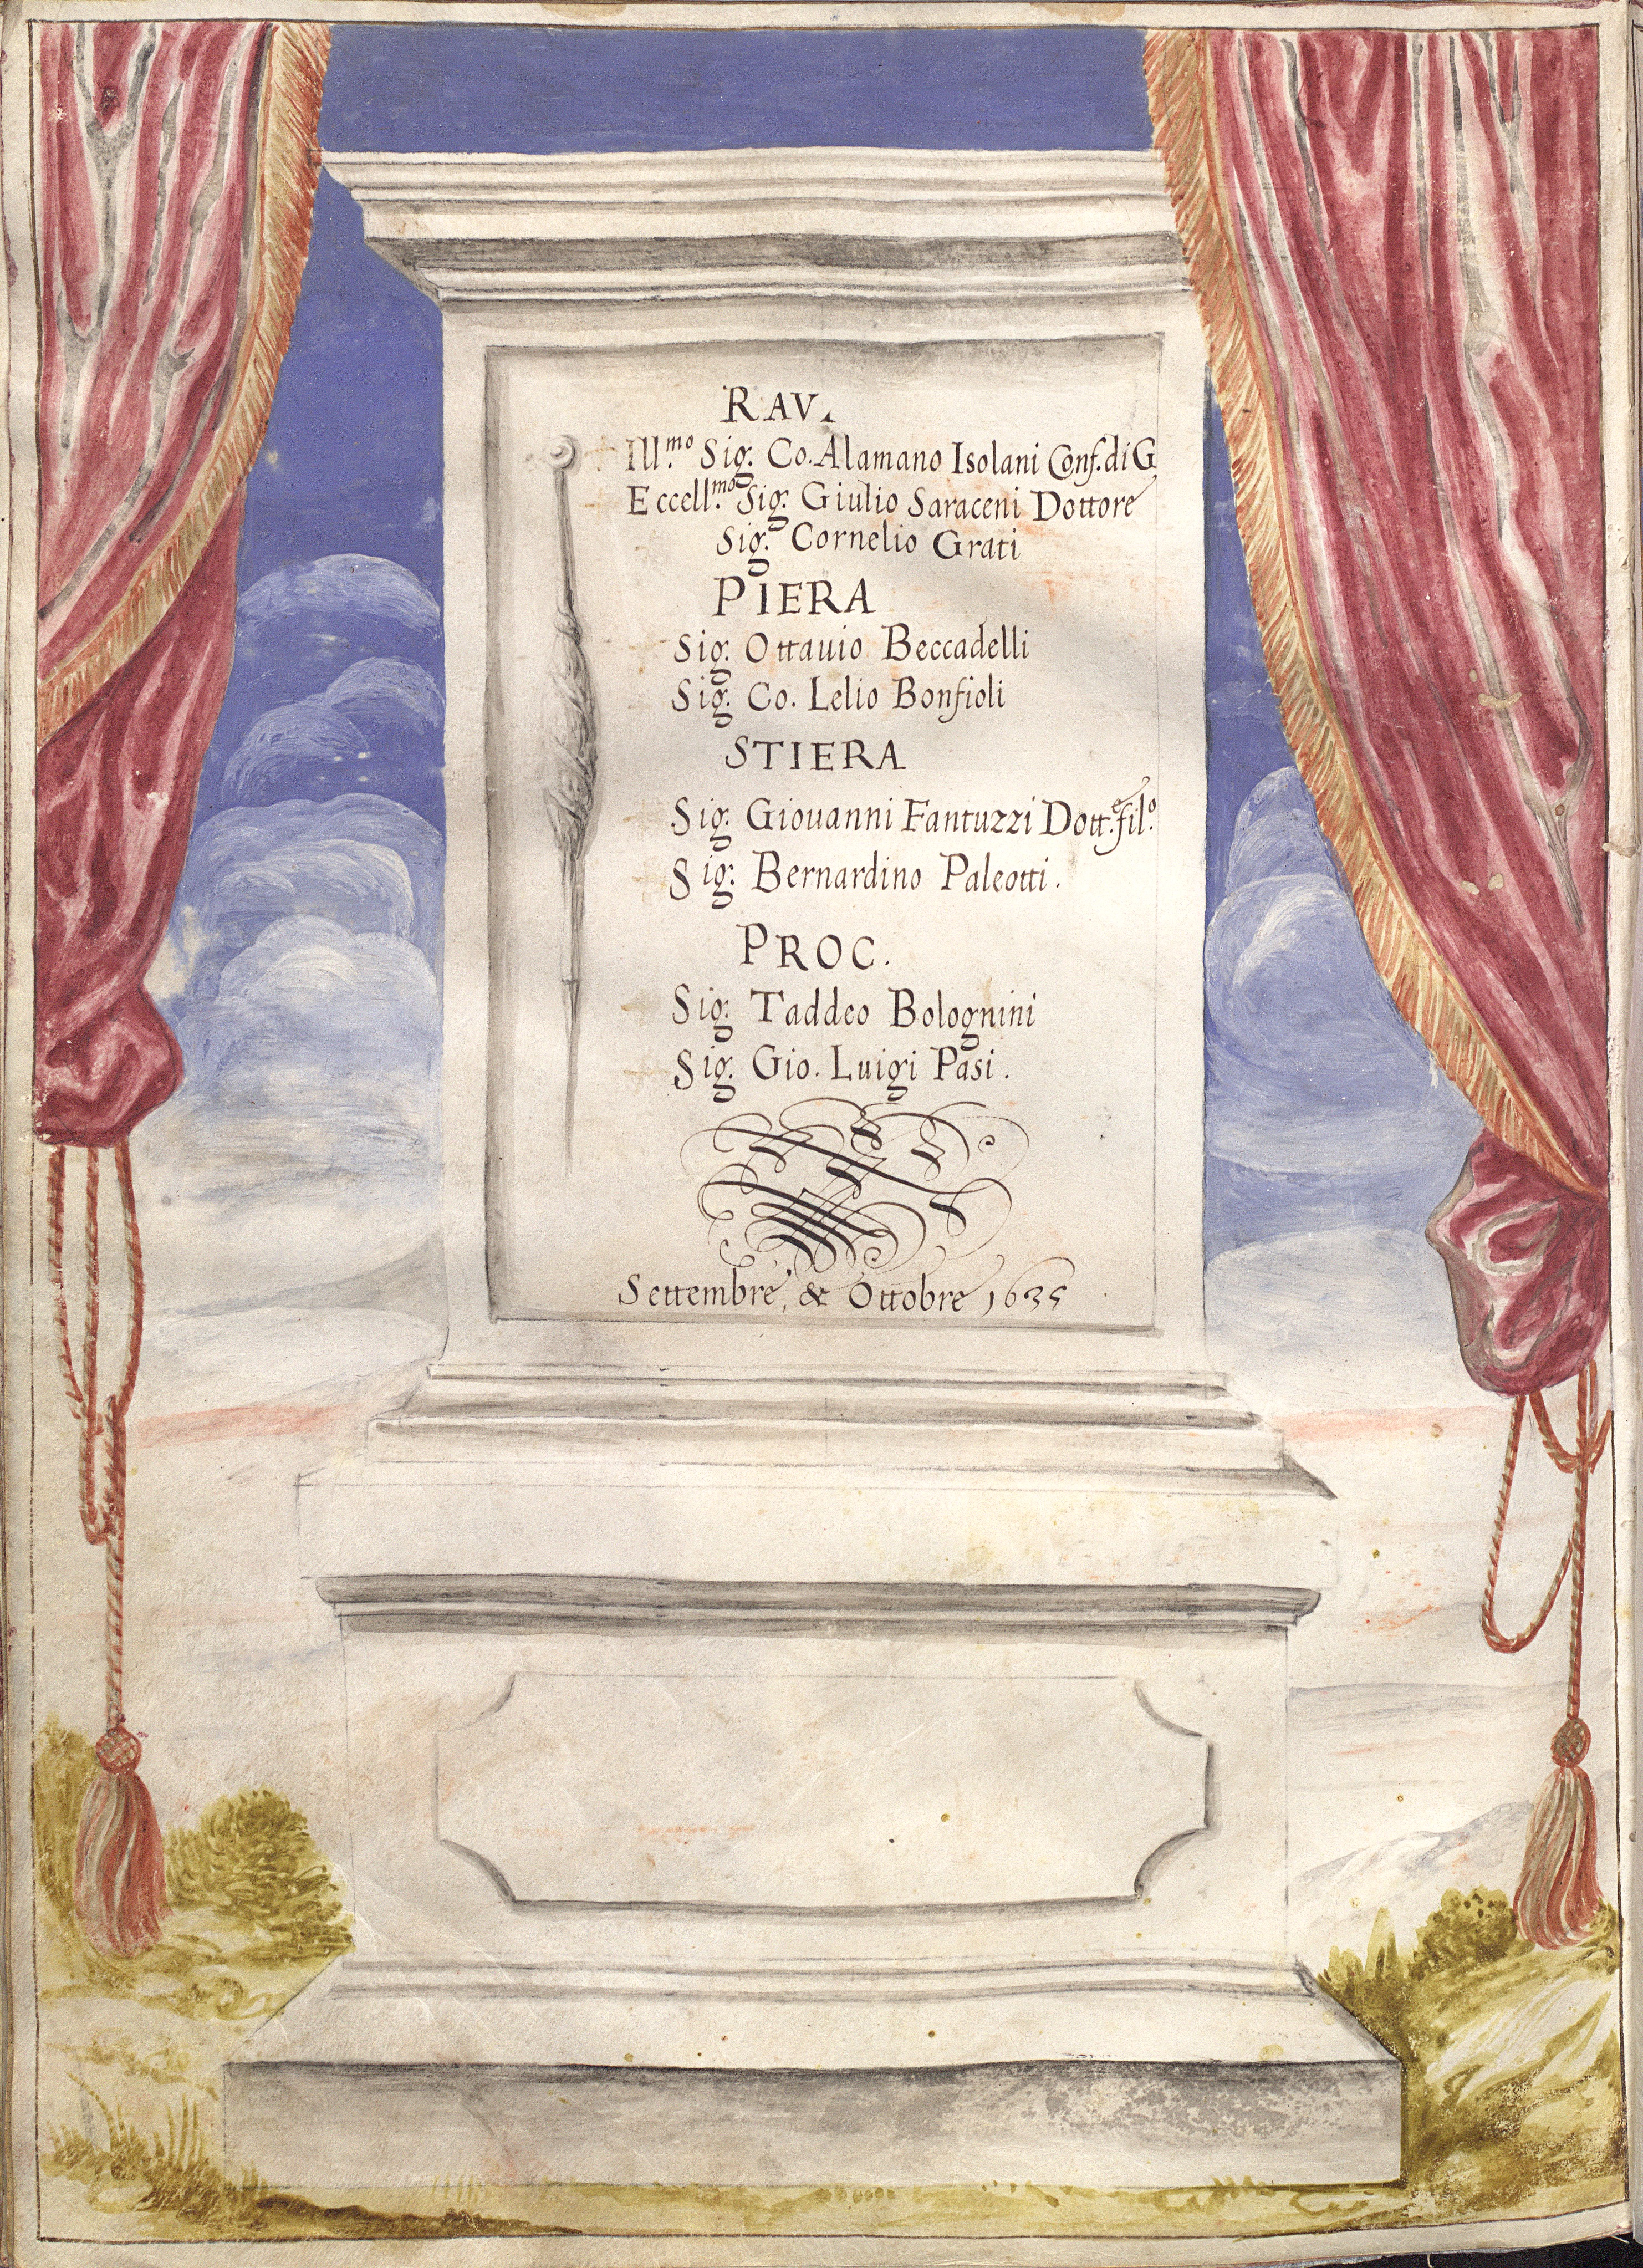 RAV.
Ill.mo Sig. Co. Alamano Isolani Conf. di G
Eccell.mo Sig. Giulio Saraceni Dottore
Sig. Cornelio Grati
PIERA
Sig. Ottauio Beccadelli
Sig. Co. Lelio Bonfioli
STIERA
Sig. Giouanni Fantuzzi Dott. e fil.o
Sig. Bernardino Paleotti.
PROC.
Sig. Taddeo Bolognini
Sig. Gio. Luigi Pasi.
Settembre, & Ottobre 1635